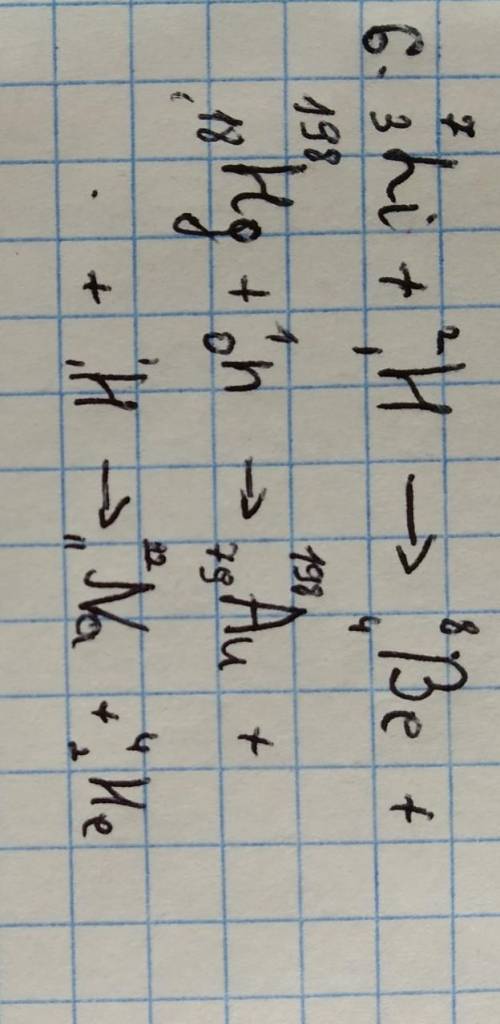 6. ⁷₃Li + ²₁H → ⁸₄Be +
¹⁹⁸₁₈Hg + ¹₀n → ¹⁹⁸₇₉Au +
+ ¹₁H → ²²₁₁Na + ⁴₂He